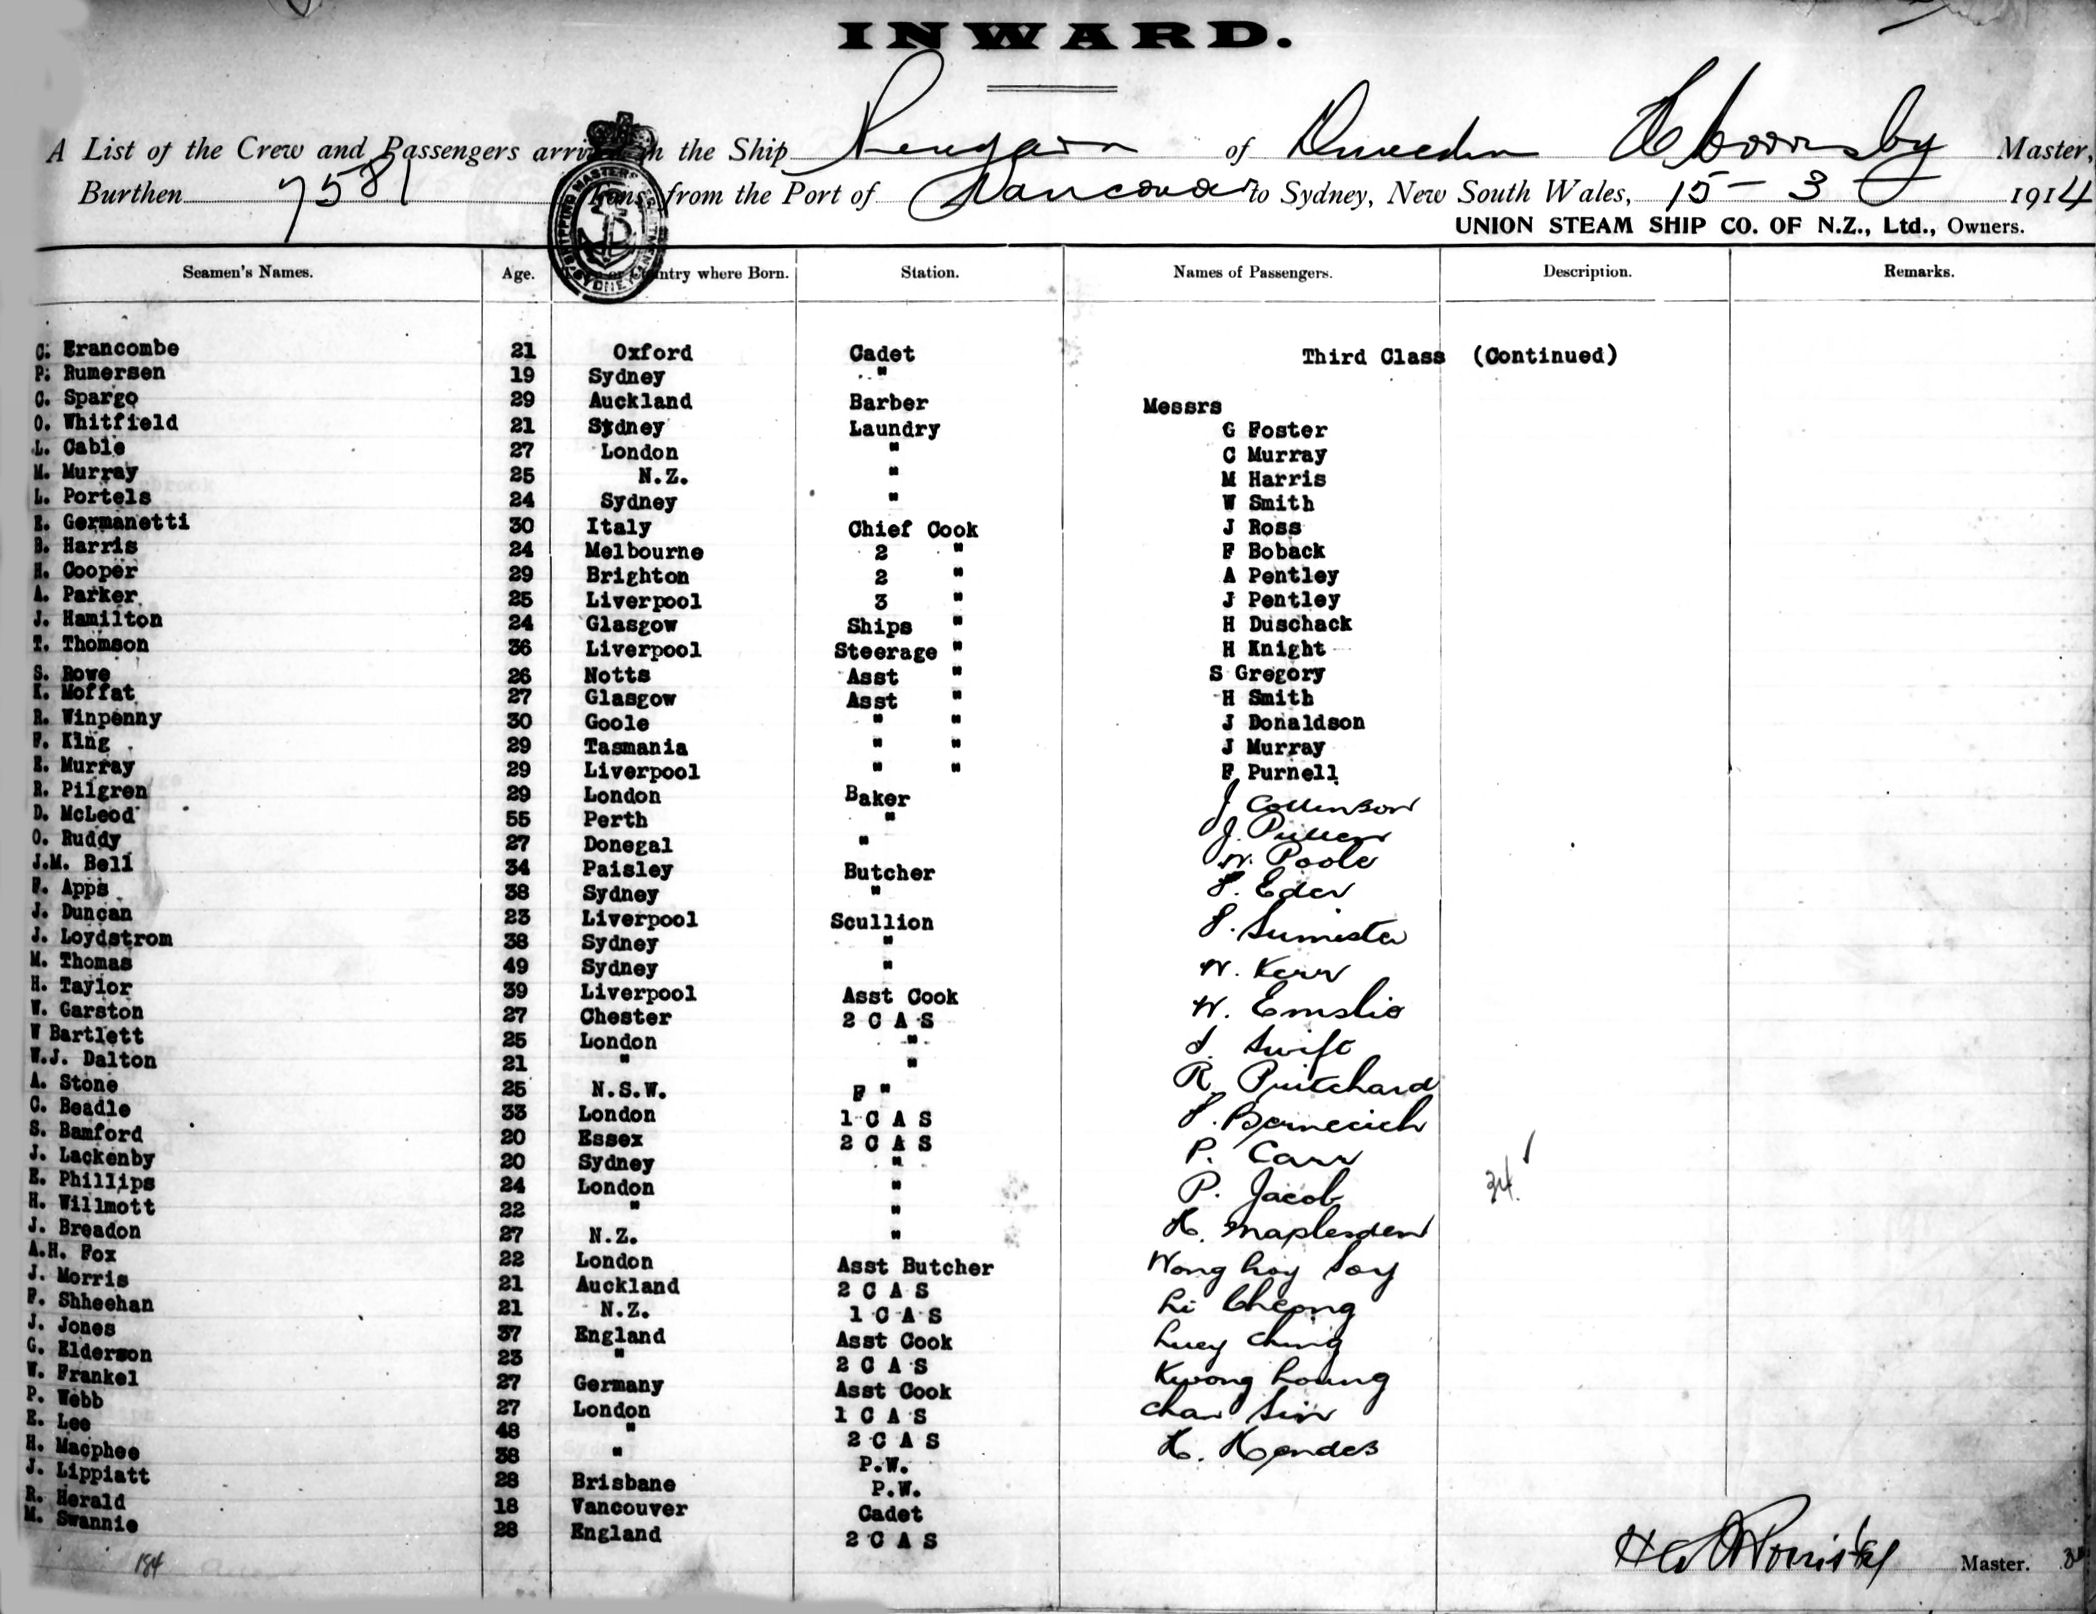 INWARD.
A List of the Crew and Passengers arrived in the Ship of Dunedin Master,
Burthen 7581 Tons from the Port of Vancouver to Sydney, New South Wales, 15 - 3 1914
UNION STEAM SHIP CO. OF N.Z., Ltd., Owners.
Seamen's Names. Age. Town or Country where Born. Station. Names of Passengers. Description. Remarks.
C. Brancombe 21 Oxford Cadet Third Class (Continued)
P. Rumersen 19 Sydney "
C. Spargo 29 Auckland Barber Messrs
O. Whitfield 21 Sydney Laundry G Foster
L. Cable 27 London " C Murray
M. Murray 25 N.Z. " M Harris
L. Portels 24 Sydney " W Smith
E. Germanetti 30 Italy Chief Cook J Ross
B. Harris 24 Melbourne 2 " F Boback
H. Cooper 29 Brighton 2 " A Pentley
A. Parker 25 Liverpool 3 " J Pentley
J. Hamilton 24 Glasgow Ships " H Duschack
T. Thomson 36 Liverpool Steerage " H Knight
S. Rowe 26 Notts Asst " S Gregory
K. Moffat 27 Glasgow Asst " H Smith
R. Winpenny 30 Goole " " J Donaldson
F. King 29 Tasmania " " J Murray
E. Murray 29 Liverpool " " F Purnell
R. Pilgren 29 London Baker J Collinson
D. McLeod 55 Perth " J. Pullen
O. Ruddy 27 Donegal " W. Poole
J.M. Bell 34 Paisley Butcher Eder
F. Apps 38 Sydney "
J. Duncan 23 Liverpool Scullion
J. Loydstrom 38 Sydney "
M. Thomas 49 Sydney " W. Kerr
H. Taylor 39 Liverpool Asst Cook W. Emslie
W. Garston 27 Chester 2 C A S
W Bartlett 25 London " Swift
W.J. Dalton 21 " " R. Pritchard
A. Stone 25 N.S.W. F "
C. Beadle 33 London 1 C A S
S. Bamford 20 Essex 2 C A S P. Carr
J. Lackenby 20 Sydney "
E. Phillips 24 London " P. Jacob 34.
H. Willmott 22 " " H. Maplesden
J. Breadon 27 N.Z. "
A.H. Fox 22 London Asst Butcher Wong Hoy Soy
J. Morris 21 Auckland 2 C A S Li Cheong
F. Shheehan 21 N.Z. 1 C A S
J. Jones 37 England Asst Cook Luey Ching
G. Elderson 23 " 2 C A S Kwong Loung
W. Frankel 27 Germany Asst Cook
P. Webb 27 London 1 C A S Chan Sin
E. Lee 48 " 2 C A S H. Hendes
H. Macphee 38 " P.W.
J. Lippiatt 28 Brisbane P.W.
R. Herald 18 Vancouver Cadet
M. Swannie 28 England 2 C A S
184 Master.